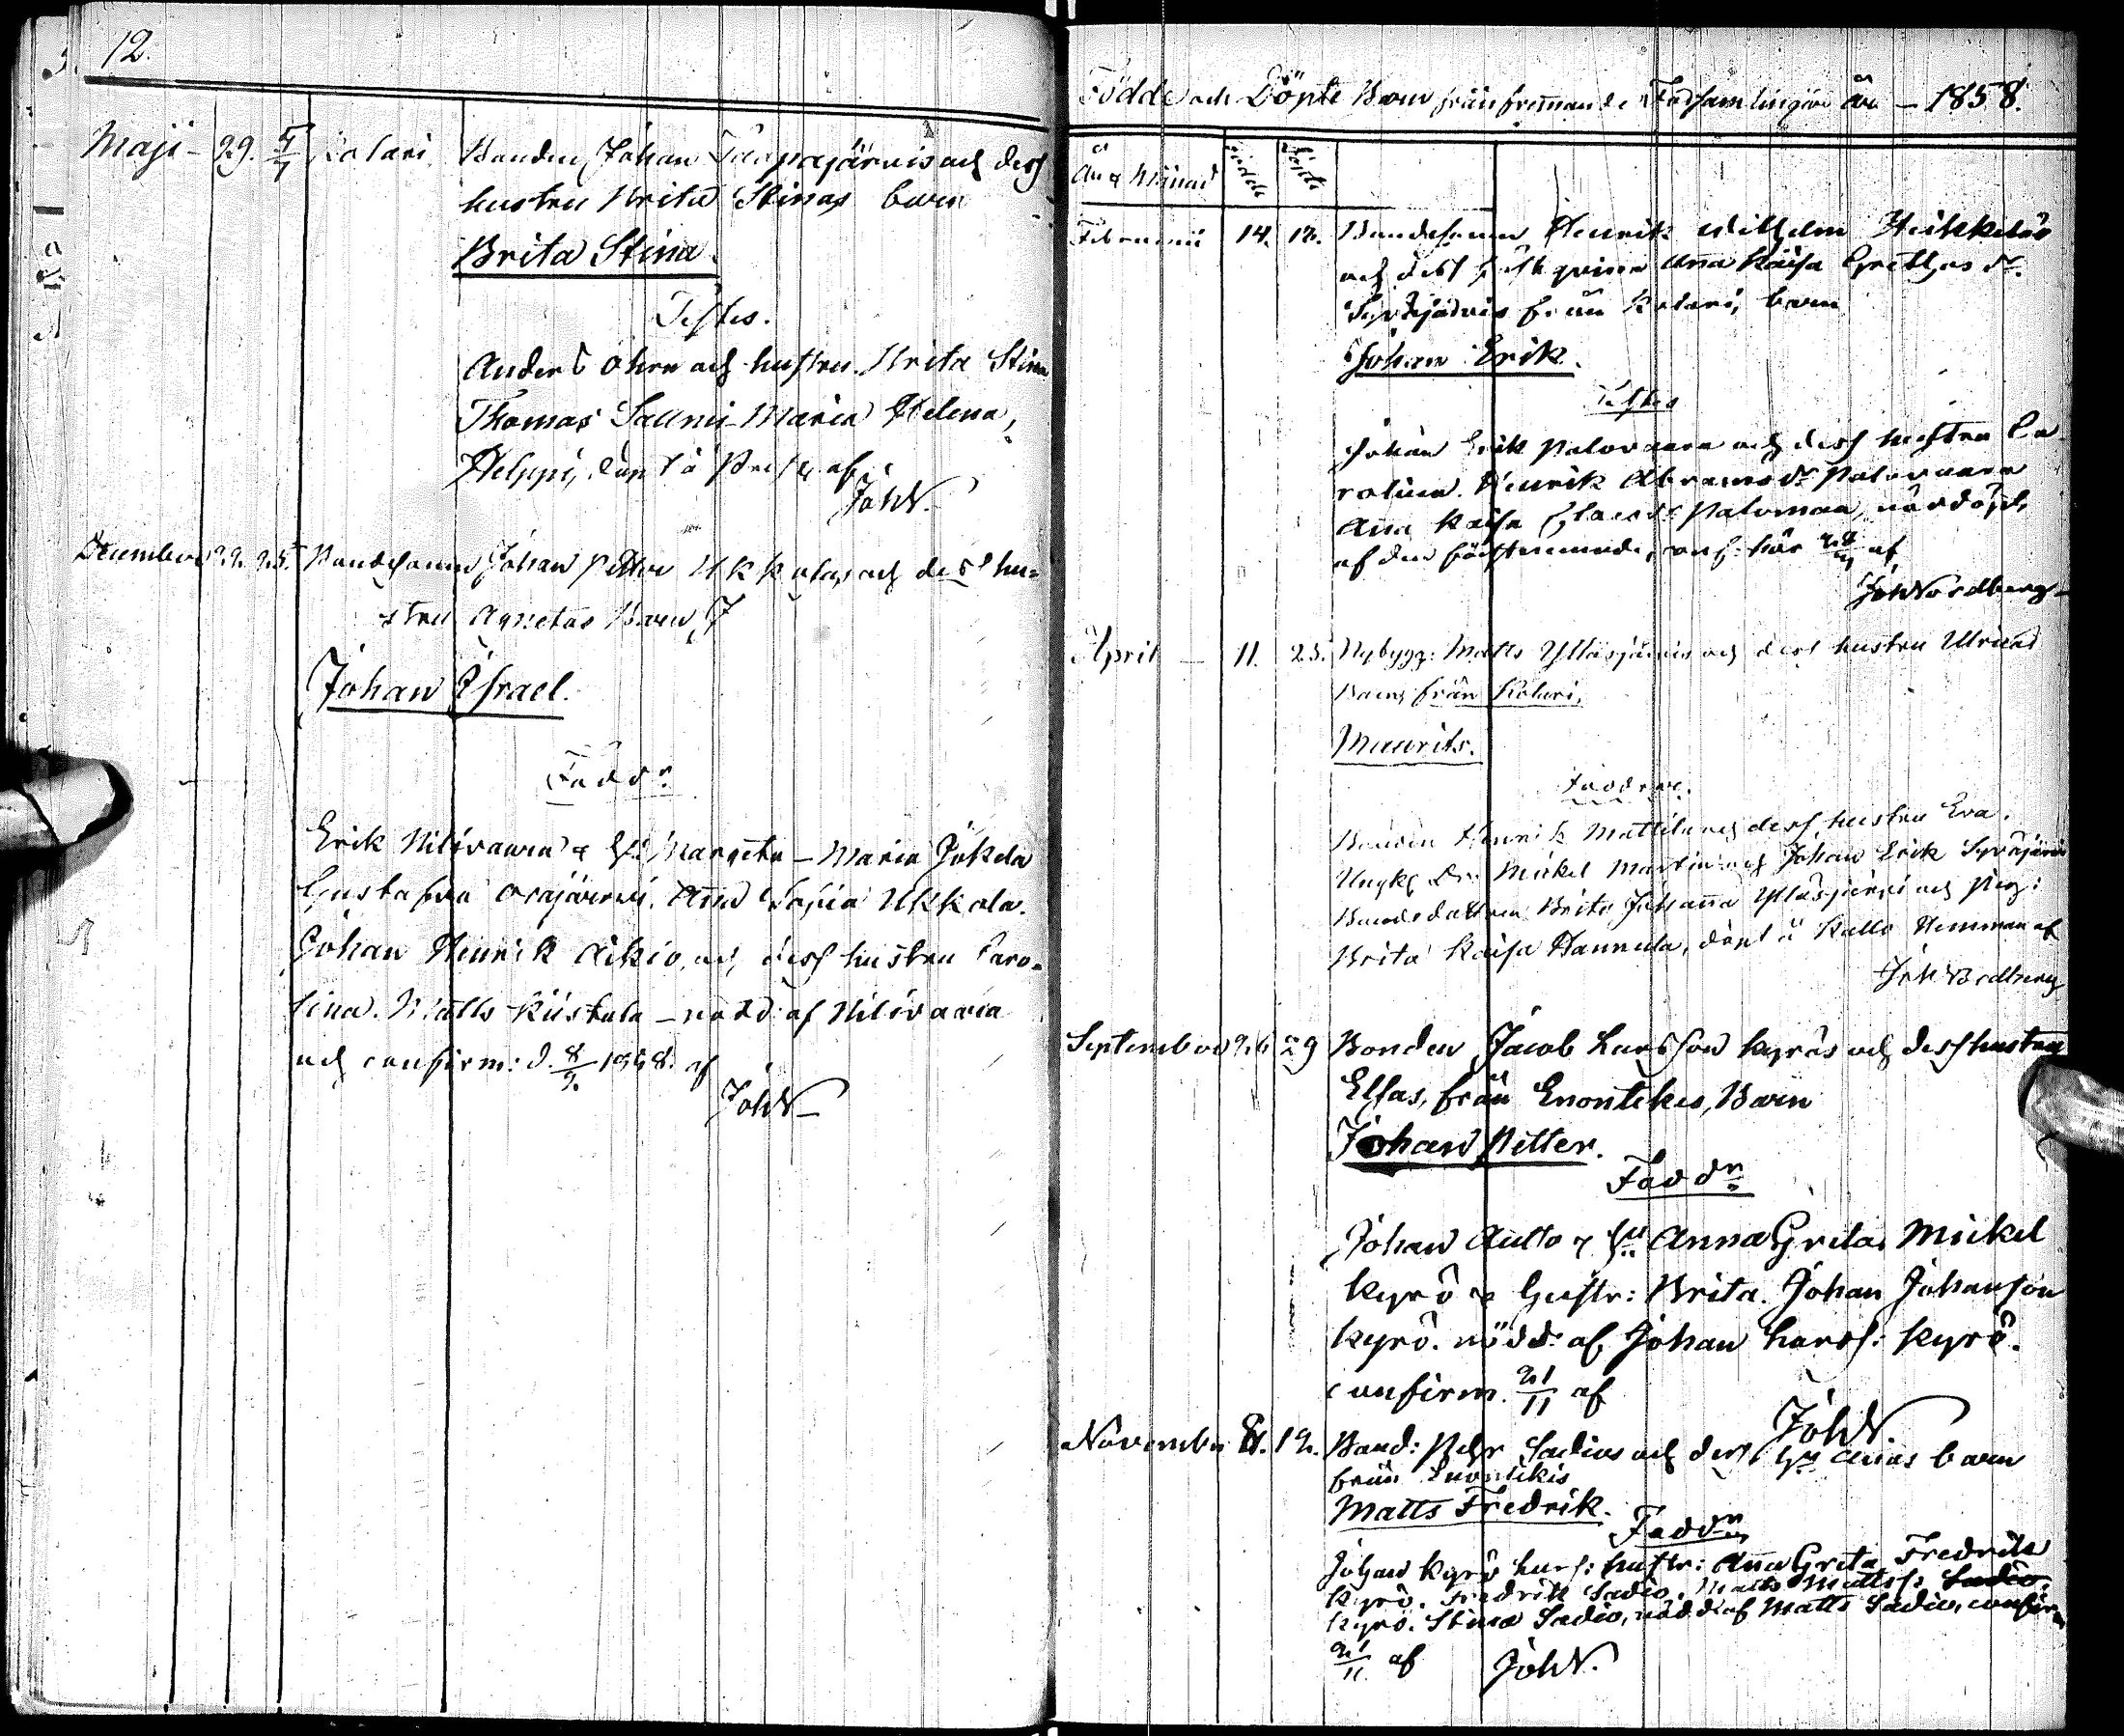 12.
Maji - 29. 4/7 Kolari, Bonden Johan Taapajärvis och dess
hustru Brita Stinas barn
Brita Stina.
Testes.
Anders Ohrn och hustru Brita Stina
Thomas Salmi - Maria Helena,
Heljpi, döpt å af
JohN.
December 22. 25. Bondesonen Johan Petter Ukkolas och dess hu=
stru Agnetas Barn,
Johan Israel.
Faddr
Erik Nilivaara & h: Margeta - Maria Jokela
Gustafva Orajärvi. Ana Sofia Ukkola.
Johan Henrik Aikio, och dess hustru Caro=
lina. Matts Kiistala - nödd: af Nilivaara
och confirm: d. 8/2. 1858. af
JohN -
Födde och Döpte Barn från fremmande Församlingar År - 1858.
År & Månad födde döpte
Februarii 14. 17. Bondesonen Henrik Wilhelm Heikkeläs
och dess Anna Kaisa Grelsdr
från Kolari, barn
Johan Erik.
Testes
Johan Erik Palovaara och dess hustru Ca
rolina. Henrik Abramsdr Palovaara
Ana Kaisa Palomaa, nöddöpt,
af den förstnemnde, conf: här af
JohNordberg -
April - 11. 25. Nybygg: Matts Ylläsjärvis och dess hustru Ulricas
Barn, från Kolari,
Maurits.
Faddrar.
Bonden Henrik Mattila och dess hustru Eva.
Mickel Martin och Johan Erik
Bondedottren Brita Johanna Ylläsjärvi och Pig:
Brita Kaisa Hannula, döpt å Kallo Hemman af
Joh Nordberg
September 26 29 Bonden Jacob Larsson Kyrös och dess hustru
Elsas, från Enontekis, Barn
Johan Petter.
Faddr
Johan Aulto & hu Anna Greta. Mickel
Kyrö & Hustr: Brita. Johan Johansson
Kyrö. nödd: af Johan Larss: Kyrö.
confirm. 21/11 af
JohN.
November 8. 12. Bond: Pehr Sadios och dess hu Anas barn
från Enontekis
Matts Fredrik.
Faddr
Johan Kyrö Lars: hustr: Anna Greta Fredrik
Kyrö. Fredrik Sadio. Matts Mattss: Sadio.
Kyrö. Stina Sadio, nödd: af Matts Sadio, confirm
21/11 af JohN.